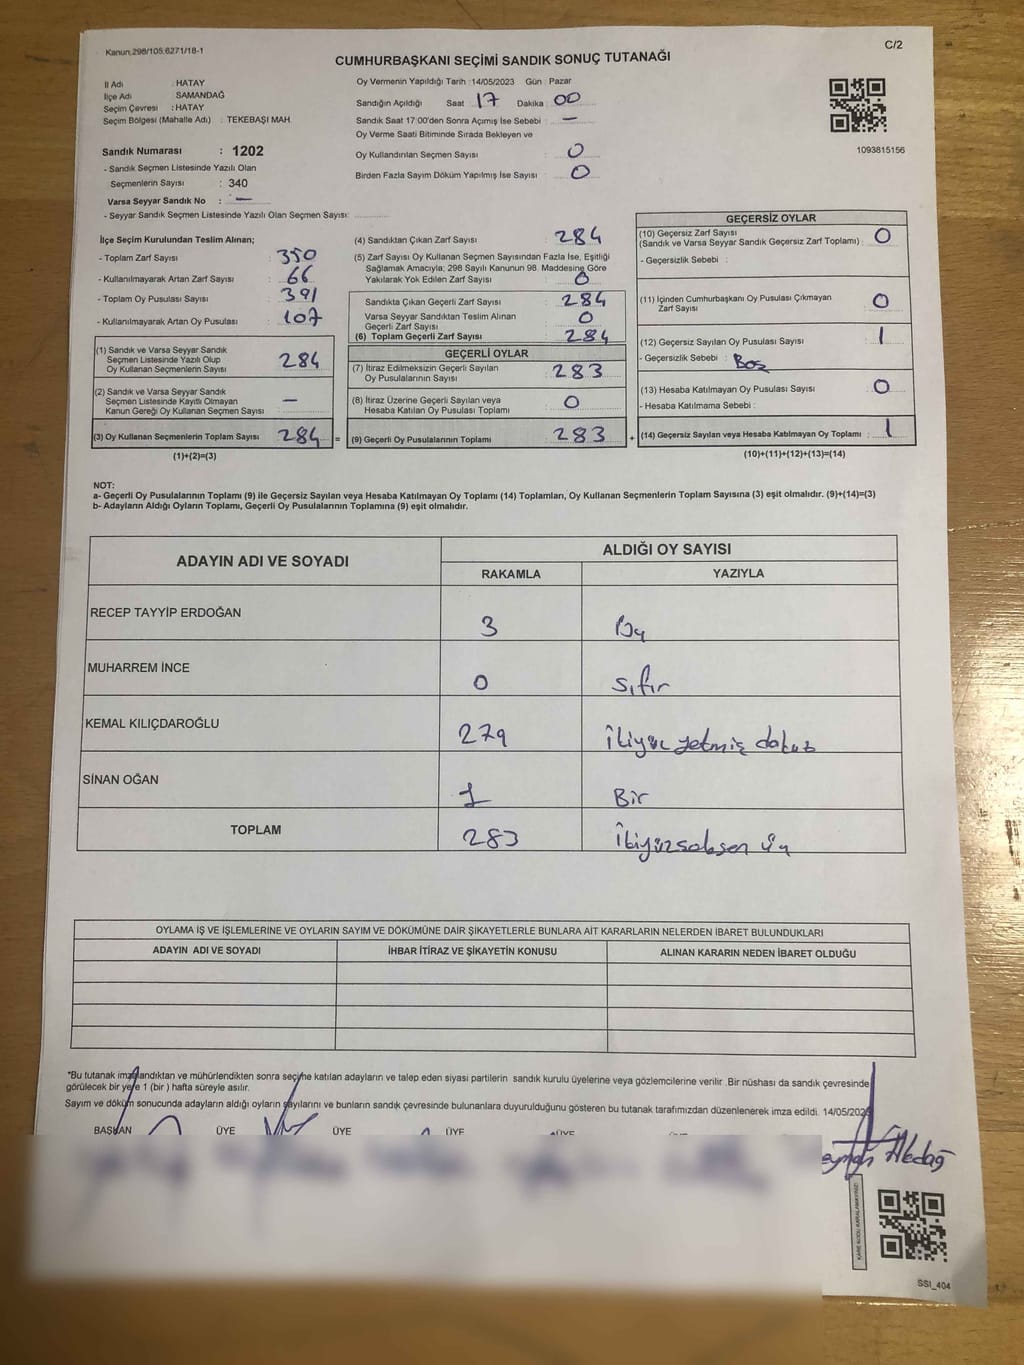 Kanun.298/105.6271/18-1
C/2
CUMHURBAŞKANI SEÇİMİ SANDIK SONUÇ TUTANAĞI
İl Adı : HATAY
İlçe Adı : SAMANDAĞ
Seçim Çevresi : HATAY
Seçim Bölgesi (Mahalle Adı) : TEKEBAŞI MAH.
Oy Vermenin Yapıldığı Tarih :14/05/2023 Gün : Pazar
Sandığın Açıldığı Saat 17 Dakika 00
Sandık Saat 17:00'den Sonra Açımış İse Sebebi : —
Oy Verme Saati Bitiminde Sırada Bekleyen ve
Oy Kullandırılan Seçmen Sayısı : 0
Birden Fazla Sayım Döküm Yapılmış İse Sayısı : 0
1093815156
Sandık Numarası : 1202
- Sandık Seçmen Listesinde Yazılı Olan
Seçmenlerin Sayısı : 340
Varsa Seyyar Sandık No : —
- Seyyar Sandık Seçmen Listesinde Yazılı Olan Seçmen Sayısı:
İlçe Seçim Kurulundan Teslim Alınan;
- Toplam Zarf Sayısı : 350
- Kullanılmayarak Artan Zarf Sayısı : 66
- Toplam Oy Pusulası Sayısı : 391
- Kullanılmayarak Artan Oy Pusulası : 107
(1) Sandık ve Varsa Seyyar Sandık
Seçmen Listesinde Yazılı Olup
Oy Kullanan Seçmenlerin Sayısı : 284
(2) Sandık ve Varsa Seyyar Sandık
Seçmen Listesinde Kayıtlı Olmayan
Kanun Gereği Oy Kullanan Seçmen Sayısı : —
(3) Oy Kullanan Seçmenlerin Toplam Sayısı : 284 =
(1)+(2)=(3)
(4) Sandıktan Çıkan Zarf Sayısı : 284
(5) Zarf Sayısı Oy Kullanan Seçmen Sayısından Fazla İse, Eşitliği
Sağlamak Amacıyla; 298 Sayılı Kanunun 98. Maddesine Göre
Yakılarak Yok Edilen Zarf Sayısı : 0
Sandıkta Çıkan Geçerli Zarf Sayısı : 284
Varsa Seyyar Sandıktan Teslim Alınan
Geçerli Zarf Sayısı : 0
(6) Toplam Geçerli Zarf Sayısı : 284
GEÇERLİ OYLAR
(7) İtiraz Edilmeksizin Geçerli Sayılan
Oy Pusulalarının Sayısı : 283
(8) İtiraz Üzerine Geçerli Sayılan veya
Hesaba Katılan Oy Pusulası Toplamı : 0
(9) Geçerli Oy Pusulalarının Toplamı : 283 +
GEÇERSİZ OYLAR
(10) Geçersiz Zarf Sayısı
(Sandık ve Varsa Seyyar Sandık Geçersiz Zarf Toplamı) : 0
- Geçersizlik Sebebi :
(11) İçinden Cumhurbaşkanı Oy Pusulası Çıkmayan
Zarf Sayısı : 0
(12) Geçersiz Sayılan Oy Pusulası Sayısı : 1
- Geçersizlik Sebebi : Boş
(13) Hesaba Katılmayan Oy Pusulası Sayısı : 0
- Hesaba Katılmama Sebebi :
(14) Geçersiz Sayılan veya Hesaba Katılmayan Oy Toplamı : 1
(10)+(11)+(12)+(13)=(14)
NOT:
a- Geçerli Oy Pusulalarının Toplamı (9) ile Geçersiz Sayılan veya Hesaba Katılmayan Oy Toplamı (14) Toplamları, Oy Kullanan Seçmenlerin Toplam Sayısına (3) eşit olmalıdır. (9)+(14)=(3)
b- Adayların Aldığı Oyların Toplamı, Geçerli Oy Pusulalarının Toplamına (9) eşit olmalıdır.
ADAYIN ADI VE SOYADI
ALDIĞI OY SAYISI
RAKAMLA YAZIYLA
RECEP TAYYİP ERDOĞAN 3
MUHARREM İNCE 0 sıfır
KEMAL KILIÇDAROĞLU 279 ikiyüz yetmiş dokuz
SİNAN OĞAN 1 Bir
TOPLAM 283 ikiyüzseksen üç
OYLAMA İŞ VE İŞLEMLERİNE VE OYLARIN SAYIM VE DÖKÜMÜNE DAİR ŞİKAYETLERLE BUNLARA AİT KARARLARIN NELERDEN İBARET BULUNDUKLARI
ADAYIN ADI VE SOYADI İHBAR İTİRAZ VE ŞİKAYETİN KONUSU ALINAN KARARIN NEDEN İBARET OLDUĞU
*Bu tutanak imzalandıktan ve mühürlendikten sonra seçime katılan adayların ve talep eden siyasi partilerin sandık kurulu üyelerine veya gözlemcilerine verilir .Bir nüshası da sandık çevresinde
görülecek bir yere 1 (bir ) hafta süreyle asılır.
Sayım ve döküm sonucunda adayların aldığı oyların sayılarını ve bunların sandık çevresinde bulunanlara duyurulduğunu gösteren bu tutanak tarafımızdan düzenlenerek imza edildi. 14/05/2023
BAŞKAN ÜYE ÜYE ÜYE ÜYE
Akdağ
KARE KODU KARALAMAYINIZ!
SSI_404